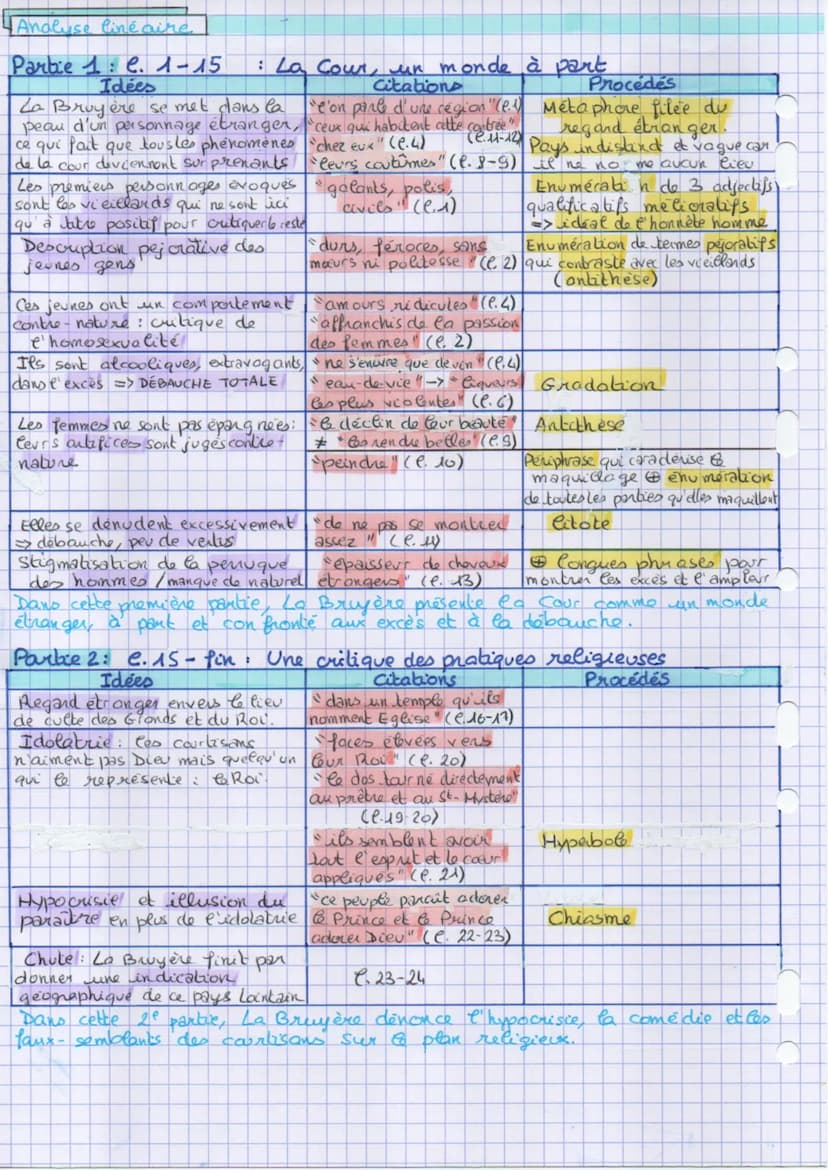 Analyse linéaire
Partie 1 : l. 1-15 : La Cour, un monde à part
Idées
Citations
Procédés
La Bruyère se met dans la
peau d'un personnage étranger,
ce qui fait que tous les phénomènes
de la cour deviennent surprenants
"l'on parle d'une région" (l.1)
"ceux qui habitent cette contrée"
(l.11-12)
"chez eux" (l.4)
"leurs coutûmes" (l. 8-9)
Métaphore filée du
regard étranger.
Pays indistinct et vague car
il ne nomme aucun lieu
Les premiers personnages évoqués
sont les vieillards qui ne sont ici
qu'à titre positif pour critiquer le reste
"galants, polis,
civils" (l.1)
Enumération de 3 adjectifs
qualificatifs mélioratifs
=> idéal de l'honnête homme
Description péjorative des
jeunes gens
"durs, féroces, sans
mœurs ni politesse" (l. 2)
Enumération de termes péjoratifs
qui contraste avec les vieillards
(antithèse)
Ces jeunes ont un comportement
contre-nature : critique de
l'homosexualité
"amours ridicules" (l.4)
"affranchis de la passion
des femmes" (l. 2)
Ils sont alcooliques, extravagants,
dans l'excès => DÉBAUCHE TOTALE
"ne s'enivre que de vin" (l.4)
"eau-de-vie" -> "liqueurs
les plus violentes" (l. 6)
Gradation
Les femmes ne sont pas épargnées:
leurs artifices sont jugés contre-
nature
"le déclin de leur beauté"
≠ "les rendre belles" (l.9)
Antithèse
"peindre" (l. 10)
Périphrase qui caractérise le
maquillage ⊕ énumération
de toutes les parties qu'elles maquillent
Elles se dénudent excessivement
=> débauche, peu de vertus
"de ne pas se montrer
assez" (l. 11)
Litote
Stigmatisation de la perruque
des hommes / manque de naturel
"épaisseur de cheveux
étrangers" (l. 13)
⊕ longues phrases pour
montrer les excès et l'ampleur
Dans cette première partie, La Bruyère présente la Cour comme un monde
étranger, à part et confronté aux excès et à la débauche.
Partie 2 : l. 15 - fin : Une critique des pratiques religieuses
Idées
Citations
Procédés
Regard étranger envers le lieu
de culte des Grands et du Roi.
"dans un temple qu'ils
nomment Eglise" (l.16-17)
Idolatrie : les courtisans
n'aiment pas Dieu mais quelqu'un
qui le représente : le Roi.
"faces élevées vers
leur Roi" (l. 20)
"le dos tourné directement
au prêtre et au St-Mystère"
(l.19-20)
"ils semblent avoir
tout l'esprit et le cœur
appliqués" (l. 21)
Hyperbole
Hypocrisie et illusion du
paraître en plus de l'idolatrie
"ce peuple paraît adorer
le Prince et le Prince
adorer Dieu" (l. 22-23)
Chiasme
Chute : La Bruyère finit par
donner une indication
géographique de ce pays lointain
l. 23-24
Dans cette 2e partie, La Bruyère dénonce l'hypocrisie, la comédie et les
faux-semblants des courtisans sur le plan religieux.